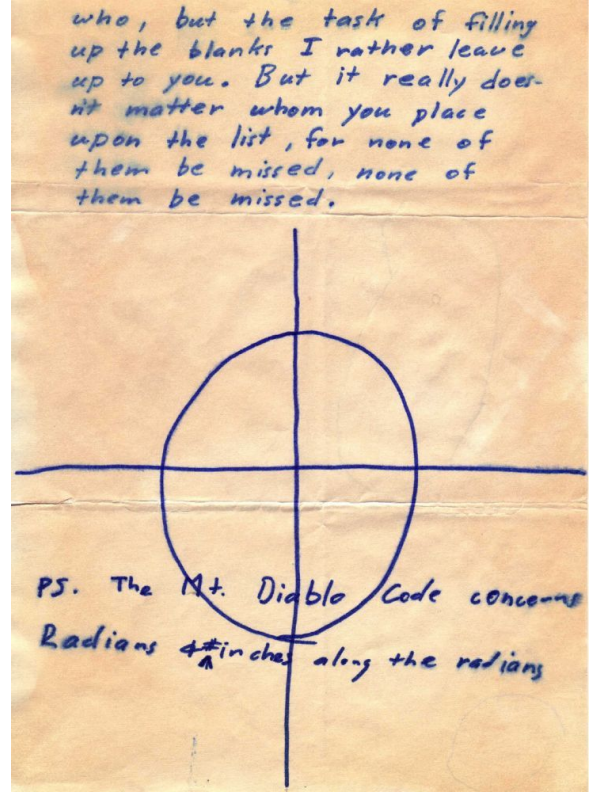 who, but the task of filling
up the blanks I rather leave
up to you. But it really does-
n't matter whom you place
upon the list, for none of
them be missed, none of
them be missed.
PS. The Mt. Diablo Code concerns
Radians & # inches along the radians